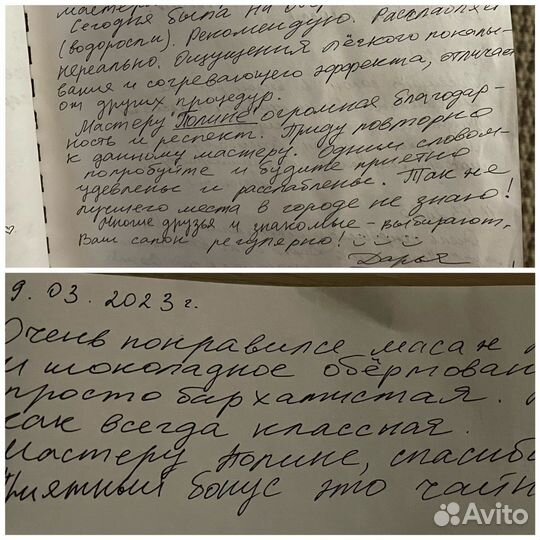 Сегодня была на обёр
(водоросли). Рекомендую. Расслабляет
нереально. Ощущения лёгкого покалы-
вания и согревающего эффекта, отличает
от других процедур.
Мастеру Полине огромная благодар-
ность и респект. Приду повторно
к данному мастеру. Одним словом-
попробуйте и будите приетно
удевленье и расслабленье. Так же
лучшего места в городе не знаю!
Многие друзья и знакомые - выбирают,
Ваш салон регулярно!
Дарья
9.03.2023г.
Очень понравилсе масаж
и шоколадное обёртован
просто бархатистая.
как всегда классная.
Мастеру Полине, спасибо
Приятный бонус это чайн
Avito